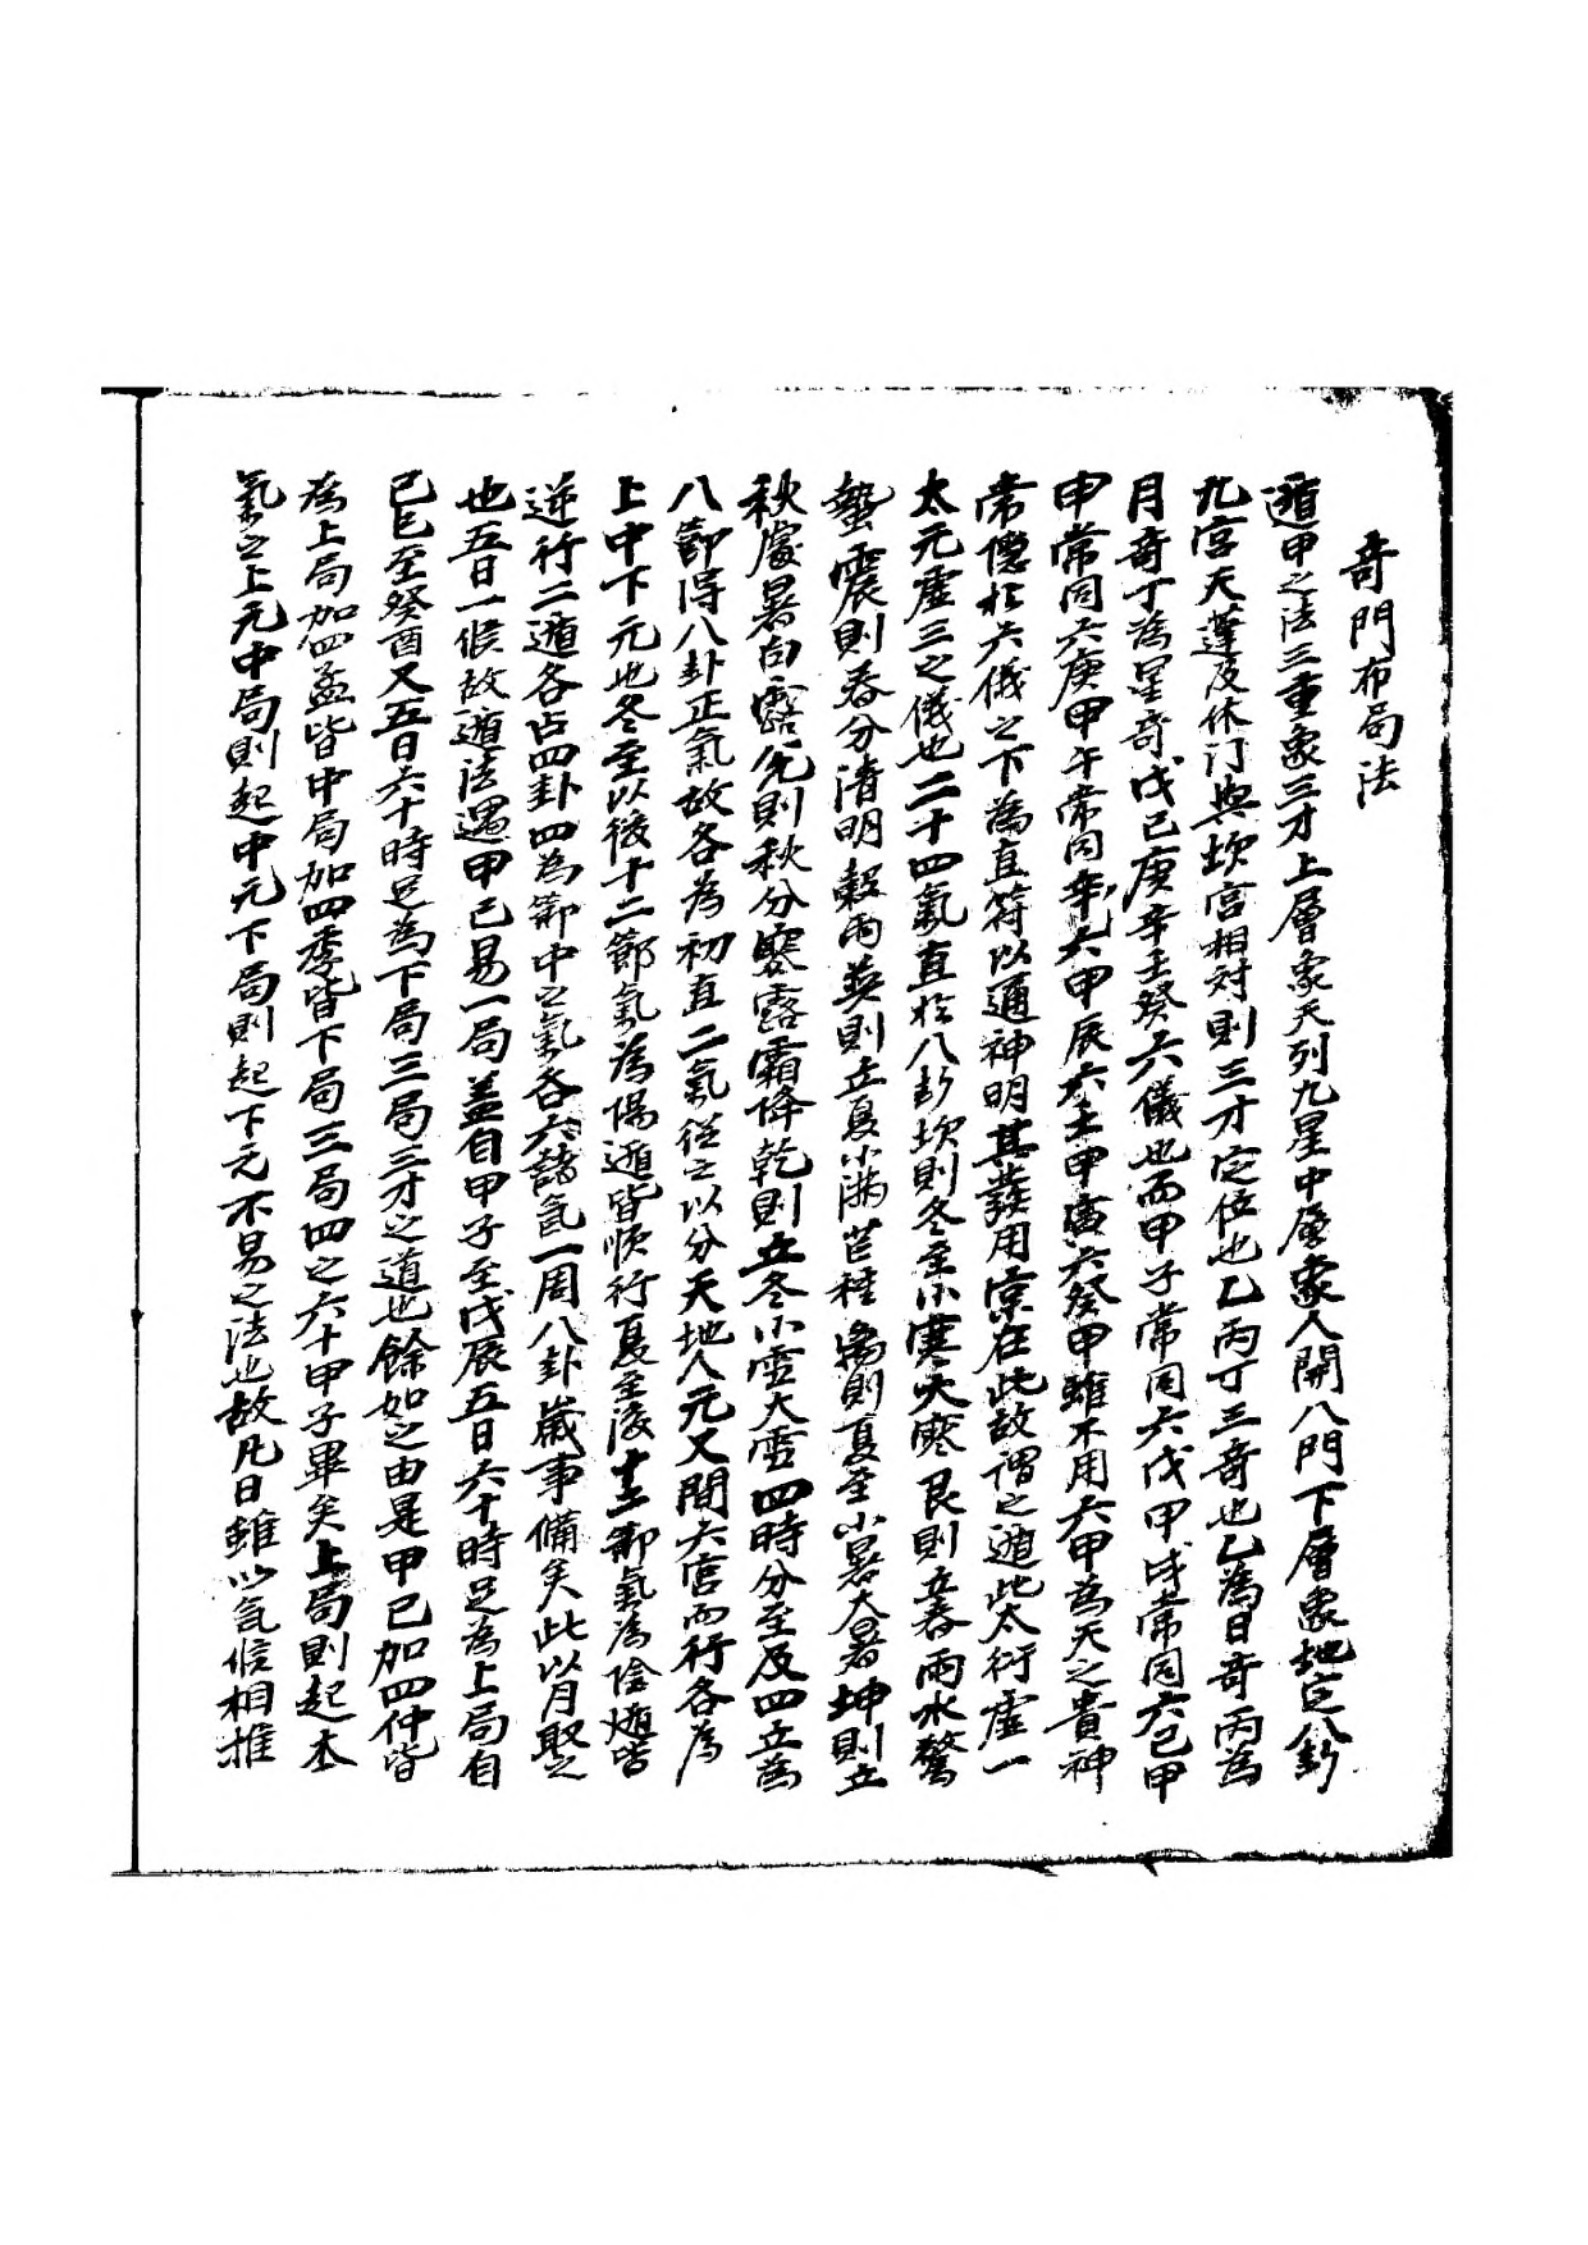 奇門布局法
遁甲之法三重象三才上層象天列九星中層象人開八門下層象地定八卦
九宮天蓬及休门與坎宮相対則三才定位也乙丙丁三奇也乙為日奇丙為
月奇丁為星奇戊己庚辛壬癸六儀也而甲子常同六戊甲戌常同六己甲
申常同六庚甲午常同辛六甲辰六壬甲寅六癸甲雖不用六甲為天之貴神
常隱於六儀之下為直符以通神明其發用常在此故謂之遁此太衍虛一
太元虛三之儀也二十四氣直於八卦坎則冬至小寒大寒艮則立春雨水驚
蟄震則春分清明穀雨巽則立夏小滿芒種离則夏至小暑大暑坤則立
秋處暑白露兌則秋分寒露霜降乾則立冬小雪大雪四時分至及四立為
八節得八卦正氣故各為初直二氣從之以分天地人元又間六宮而行各為
上中下元也冬至以後十二節氣為陽遁皆順行夏至後十二節氣為陰遁皆
逆行二遁各占四卦四為節中之氣各六諸氣一周八卦歲事備矣此以月聚之
也五日一候故遁法遇甲己易一局盖自甲子至戊辰五日六十時足為上局自
己巳至癸酉又五日六十時足為下局三局三才之道也餘如之由是甲己加四仲皆
為上局加四孟皆中局加四季皆下局三局四之六十甲子畢矣上局則起本
氣之上元中局則起中元下局則起下元不易之法也故凡日雖以氣候相推